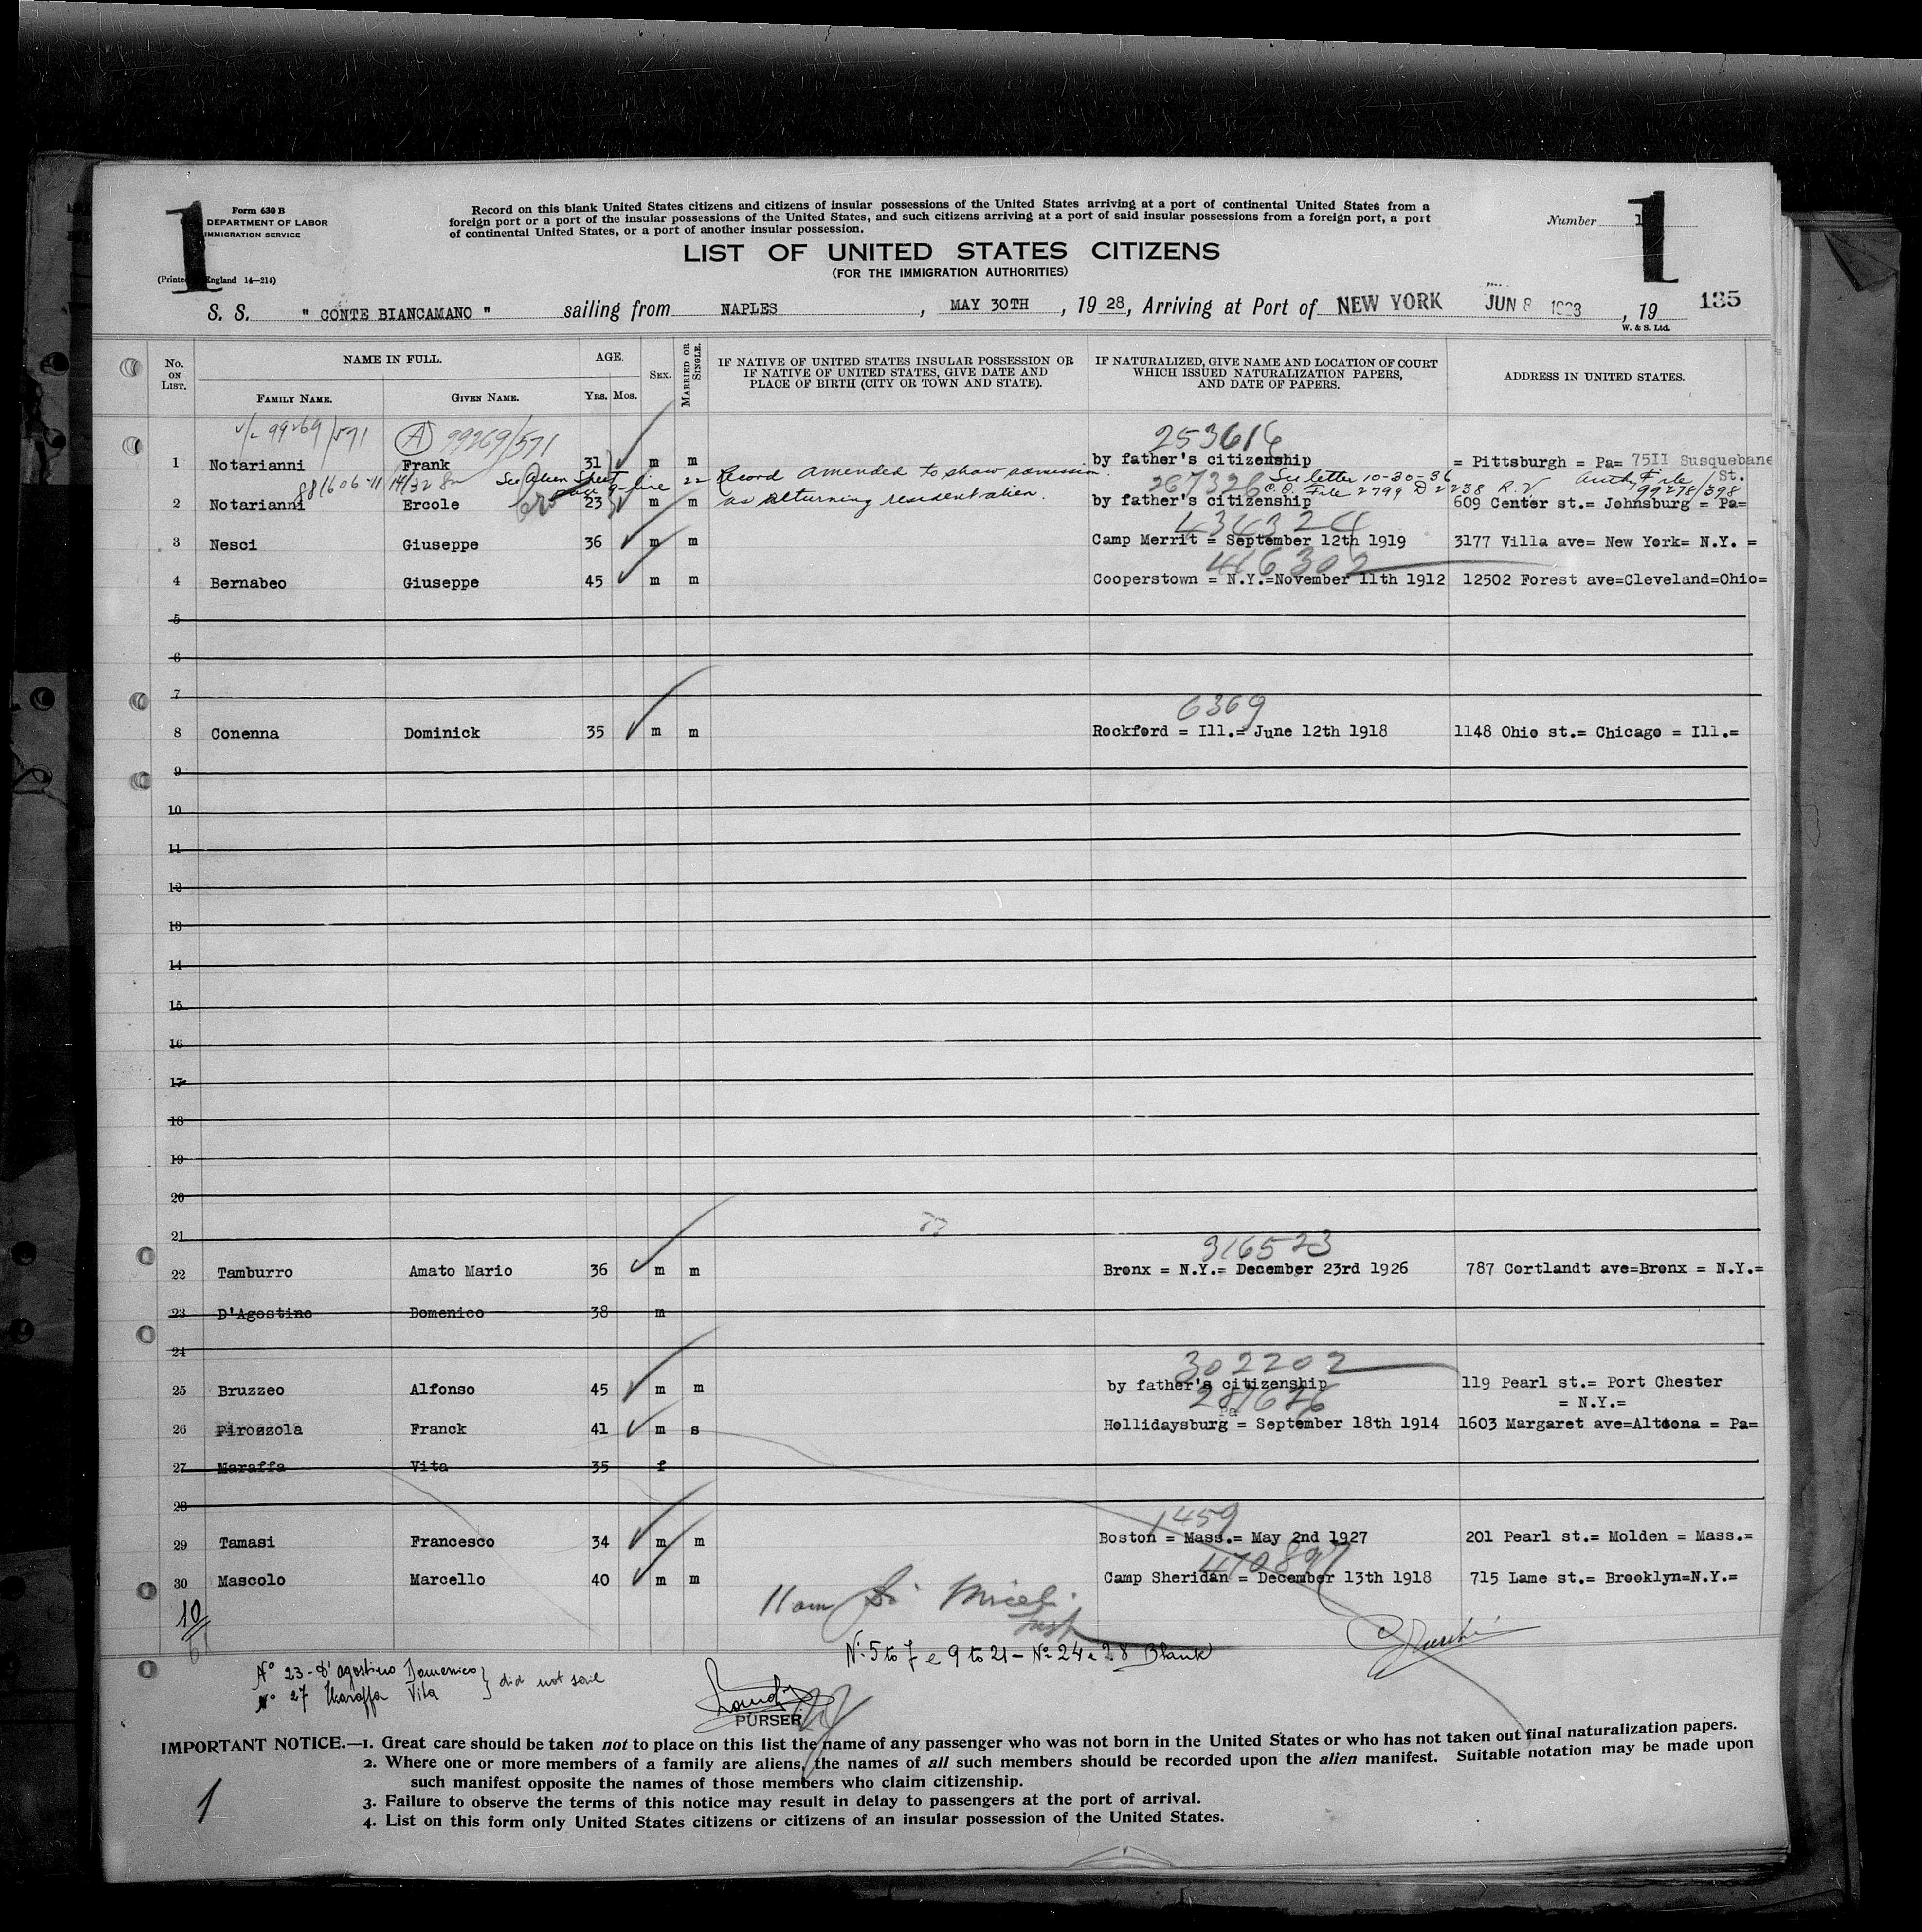 1
Form 630 B
DEPARTMENT OF LABOR
IMMIGRATION SERVICE
(Printed England 14—214)
Record on this blank United States citizens and citizens of insular possessions of the United States arriving at a port of continental United States from a
foreign port or a port of the insular possessions of the United States, and such citizens arriving at a port of said insular possessions from a foreign port, a port
of continental United States, or a port of another insular possession.
Number 1
1
LIST OF UNITED STATES CITIZENS
(FOR THE IMMIGRATION AUTHORITIES)
S. S. " CONTE BIANCAMANO " sailing from NAPLES , MAY 30TH , 19 28, Arriving at Port of NEW YORK JUN 8 , 19 135
W. & S. Ltd.
No. ON LIST. NAME IN FULL. AGE. SEX. MARRIED OR SINGLE. IF NATIVE OF UNITED STATES INSULAR POSSESSION OR IF NATIVE OF UNITED STATES, GIVE DATE AND PLACE OF BIRTH (CITY OR TOWN AND STATE). IF NATURALIZED, GIVE NAME AND LOCATION OF COURT WHICH ISSUED NATURALIZATION PAPERS, AND DATE OF PAPERS. ADDRESS IN UNITED STATES.
FAMILY NAME. GIVEN NAME. Yrs. Mos.
99269/571 A 99269/571 253616
1 Notarianni Frank 31 m m by father's citizenship = Pittsburgh = Pa= 7511 Susquebane St.
See Alien Sheet line 22 Record amended to show admission 267326 See letter 10-30-36 File
as returning resident alien. C.O. File 2799 99278/398
2 Notarianni Ercole 23 m m by father's citizenship 609 Center st.= Johnsburg = Pa=
434324
3 Nesci Giuseppe 36 m m Camp Merrit = September 12th 1919 3177 Villa ave= New York= N.Y. =
466302
4 Bernabeo Giuseppe 45 m m Cooperstown = N.Y.=November 11th 1912 12502 Forest ave=Cleveland=Ohio=
5
6
7
6369
8 Conenna Dominick 35 m m Rockford = Ill.= June 12th 1918 1148 Ohio st.= Chicago = Ill.=
9
10
11
12
13
14
15
16
17
18
19
20
21
316523
22 Tamburro Amato Mario 36 m m Bronx = N.Y.= December 23rd 1926 787 Cortlandt ave=Bronx = N.Y.=
23 D'Agostino Domenico 38 m
24
302202
25 Bruzzeo Alfonso 45 m m by father's citizenship 119 Pearl st.= Port Chester
= N.Y.=
287676
Pa
26 Pirozzola Franck 41 m s Hollidaysburg = September 18th 1914 1603 Margaret ave=Altoona = Pa=
27 Maraffa Vita 35 f
28
1459
29 Tamasi Francesco 34 m m Boston = Mass.= May 2nd 1927 201 Pearl st.= Molden = Mass.=
30 Mascolo Marcello 40 m m Camp Sheridan = December 13th 1918 715 Lame st.= Brooklyn=N.Y.=
10
11 am
No 5 to 7 e 9 to 21 - No 24 e 28 Blank
No 23 - D'agostino Domenico
No 27 Maraffa Vita } did not sail
PURSER
IMPORTANT NOTICE.—1. Great care should be taken not to place on this list the name of any passenger who was not born in the United States or who has not taken out final naturalization papers.
2. Where one or more members of a family are aliens, the names of all such members should be recorded upon the alien manifest. Suitable notation may be made upon
such manifest opposite the names of those members who claim citizenship.
3. Failure to observe the terms of this notice may result in delay to passengers at the port of arrival.
4. List on this form only United States citizens or citizens of an insular possession of the United States.
1